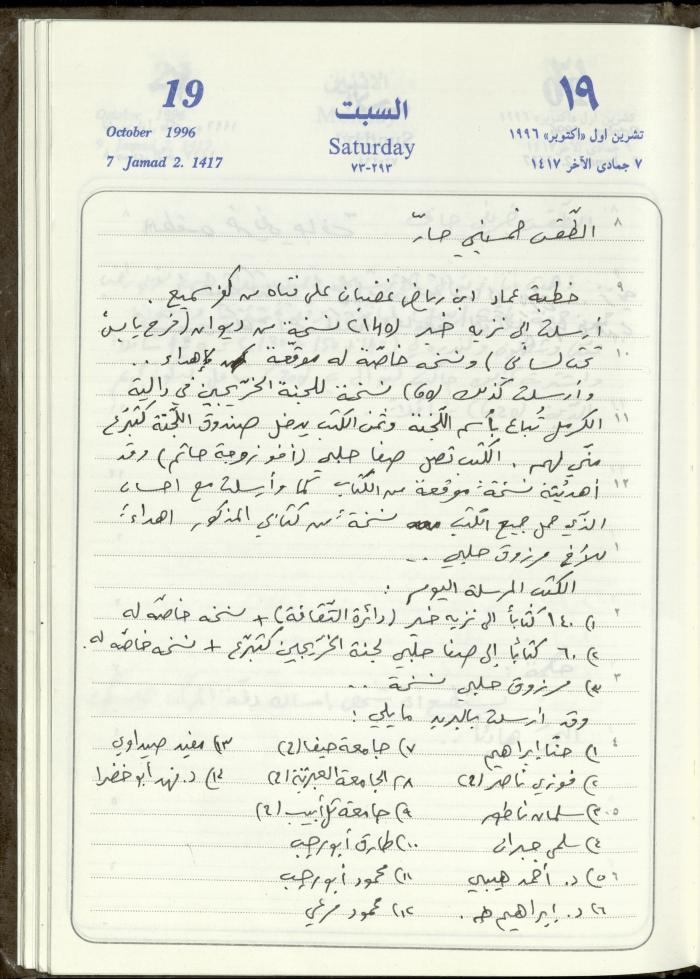 19
October 1996
7 Jamad 2. 1417
السبت
Saturday
٧٣-٢٩٣
١٩
تشرين اول «اكتوبر» ١٩٩٦
٧ جمادى الآخر ١٤١٧
٨
الطّقس خمسيني حارّ
٩
خطبة عماد ابن رياض غضبان على فتاه من كفر سميع .
أرسلت الى نزيه خير (140) نسخة من ديوان (فرح يابس
١٠
تحت لساني) ونسخة خاصّة له موقّعة كإهداء ..
وأرسلت كذلك (60) نسخة للجنة الخرّيجين في دالية
١١
الكرمل تُباع بإسم اللّجنة وثمن الكتب يدخل صندوق اللّجنة كتبرّع
منّي لهم . الكتب تصل صفا حلبي (أخو زوجة حاتم) وقد
١٢
أهديته نسخة موقعة من الكتاب كما وأرسلت مع احسان
الذي حمل جميع الكتب نسخة من كتابي المذكور اهداءً
١
للأخ مرزوق حلبي ..
الكتب المرسلة اليوم :
٢
١) ١٤٠ كتاباً الى نزيه خير (دائرة الثّقافة) + نسخه خاصّه له
٢) ٦٠ كتاباً إلى صفا حلبي لجنة الخرّيجين كتبرّع + نسخه خاصّه له.
٣
٣) مرزوق حلبي نسخة ..
وقد ارسلت بالبريد مايلي :
٤
١) حنّا إبراهيم ٧) جامعة حيفا (2) ١٣) مفيد صيداوي
٢) فوزي ناصر (2) ٨) الجامعة العبريّة (2) ١٤) د. فهد أبو خضرا
٥
٣) سلمان ناطور ٩) جامعة تل أبيب (2)
٤) سلمى جبران ١٠) طارق أبو رجب
٦
٥) د. أحمد هيبي ١١) محمود أبو رجب
٦) د. إبراهيم طه. ١٢) محمود مرعي